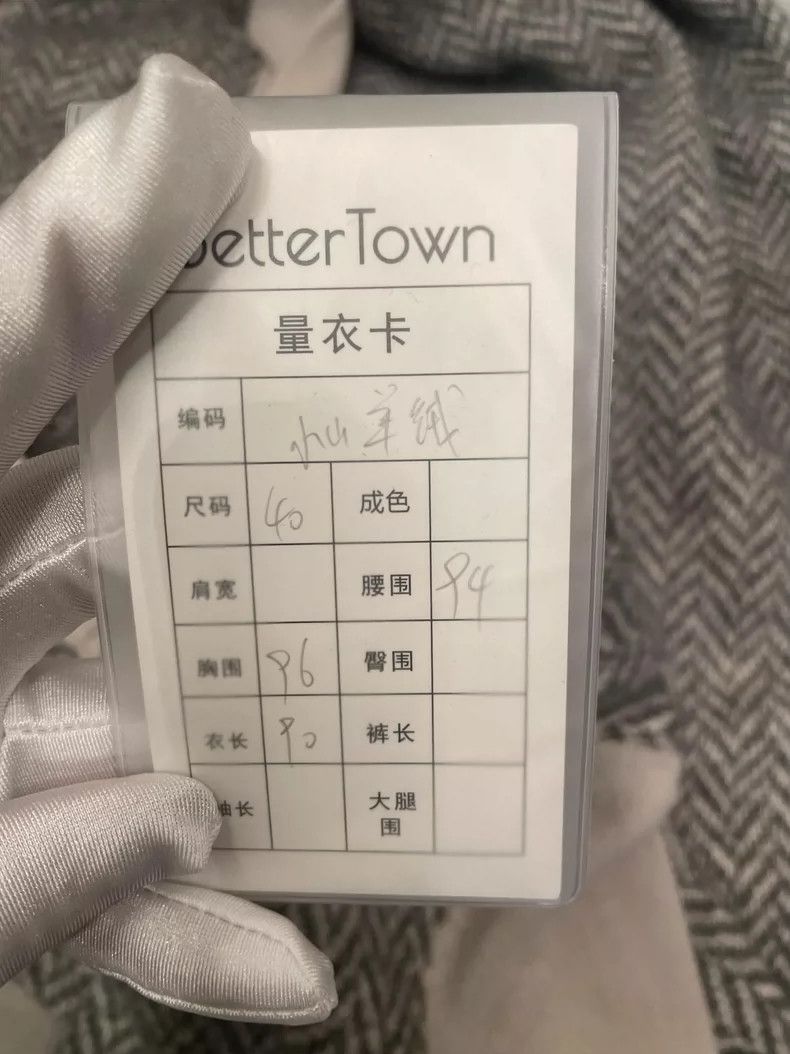 betterTown
量衣卡
编码 小山羊绒
尺码 40 成色
肩宽 腰围 94
胸围 96 臀围
衣长 90 裤长
袖长 大腿围